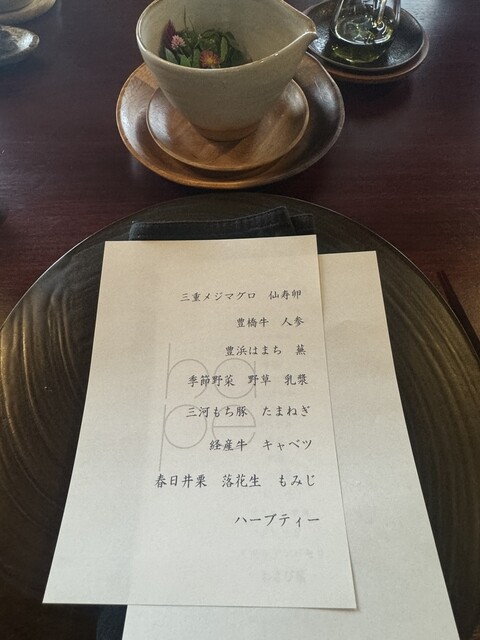 三重メジマグロ　仙寿卵
豊橋牛　人参
豊浜はまち　蕪
季節野菜　野草　乳漿
三河もち豚　たまねぎ
経産牛　キャベツ
春日井栗　落花生　もみじ
ハーブティー
ha
pe